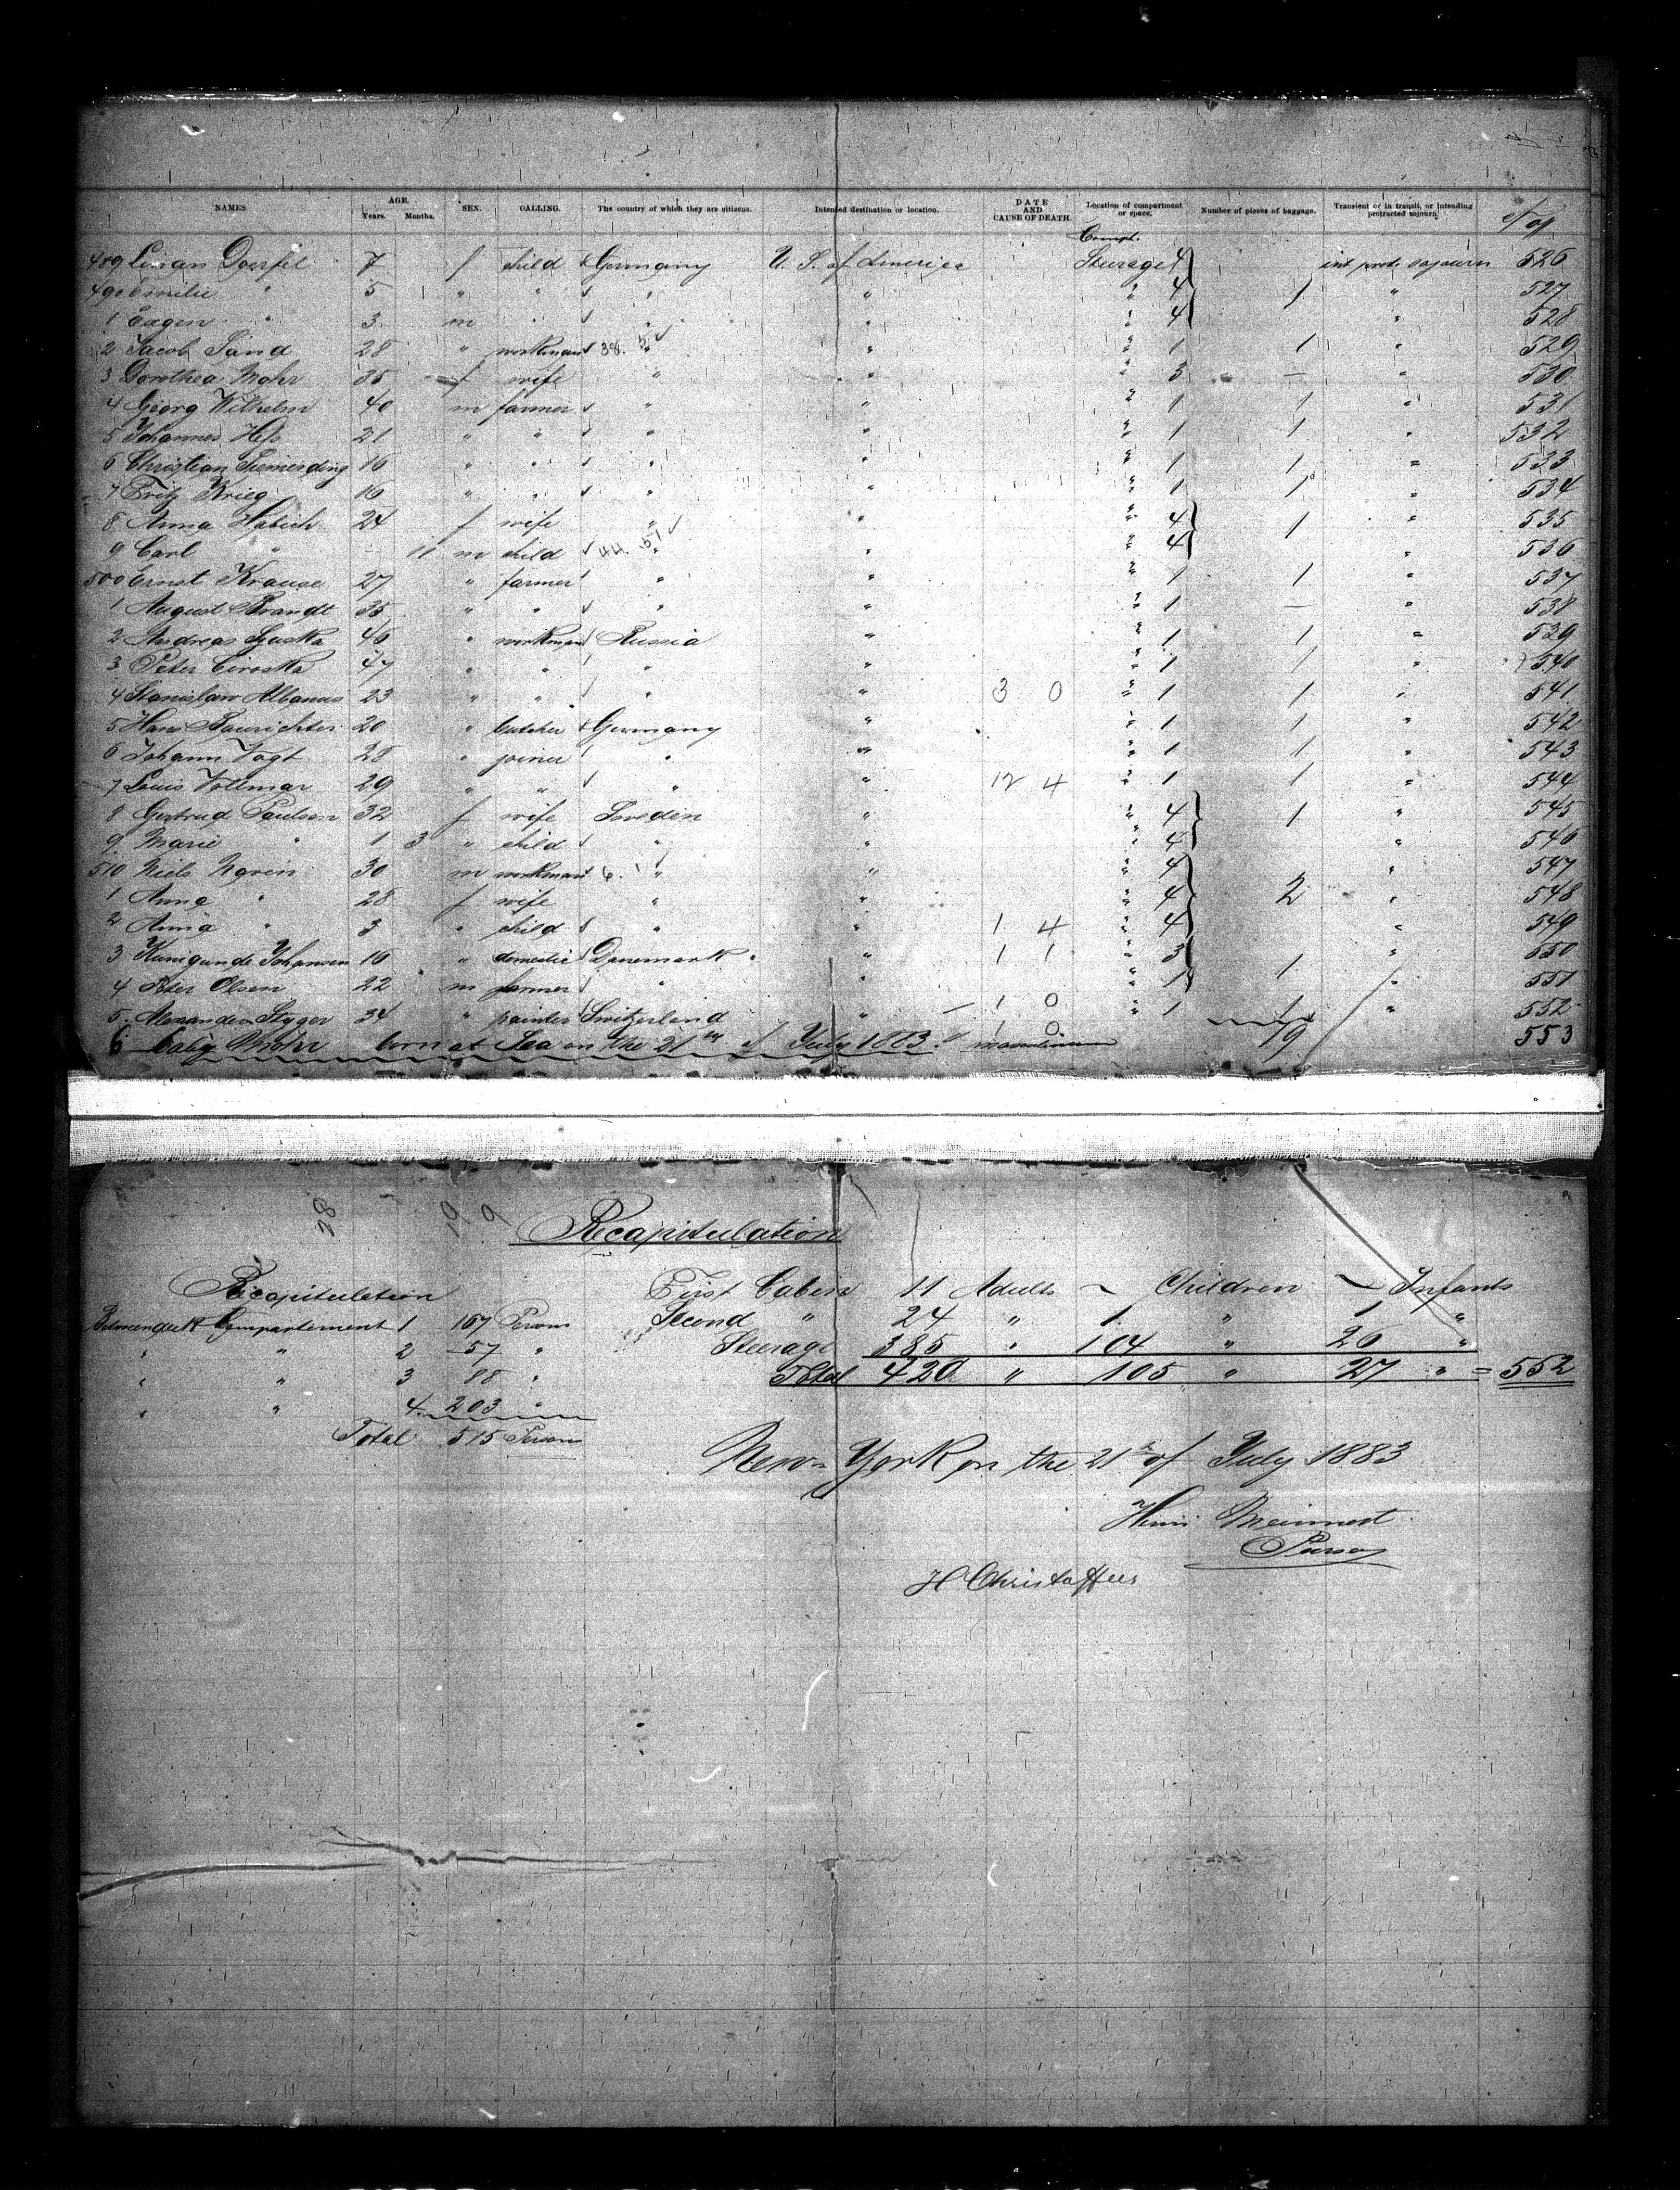 NAMES. AGE. Years. Months. SEX. CALLING. The country of which they are citizens. Intended destination or location. DATE AND CAUSE OF DEATH. Location of compartment or space. Number of pieces of baggage. Transient or in transit, or intending protracted sojourn.
Compt.
489 Doerfel 7 f child Germany U. S. of America Steerage 4 int. prot. sojourn 526
490 Emilie " 5 " " " " " 4 1 " 527
1 Eugen " 3 m " " " " 4 " 528
2 Jacob Sand 28 " workman 38. 51 " " " 1 1 " 529
3 Dorothea Mohr 35 f wife " " " 3 — " 530
4 Georg Wilhelm 40 m farmer " " " 1 1 " 531
5 Johannes Heß 21 " " " " " 1 1 " 532
6 Christian 16 " " " " " 1 1 " 533
7 Fritz Krieg 16 " " " " " 1 1 " 534
8 Anna Habich 24 f wife " " " 4 1 " 535
9 Carl " 11 m child 44. 51 " " " 4 " 536
500 Ernst Krause 27 " farmer " " " 1 1 " 537
1 August Brandt 35 " " " " " 1 — " 538
2 Andreas 46 " workman Russia " " 1 1 " 539
3 Peter 47 " " " " " 1 1 " 540
4 Stanislaw Albanus 23 " " " " 3 0 " 1 1 " 541
5 Hans 20 " butcher Germany " " 1 1 " 542
6 Johann Vogt 28 " joiner " " " 1 1 " 543
7 Louis Vollmar 29 " " " " 12 4 " 1 1 " 544
8 Gertrud Paulsen 32 f wife Sweden " " 4 1 " 545
9 Marie " 1 3 " child " " " 4 " 546
510 Niels 30 m workman 6. 1 " " " 4 " 547
1 Anna " 28 f wife " " " 4 2 " 548
2 Anna " 3 " child " " 1 4 " 4 " 549
3 Kunigunde Johansen 16 " domestic Danemark " 1 1 " 3 " 550
4 Peter Olsen 22 m farmer " " " 1 1 " 551
5 Alexander Styger 34 " painter Switzerland " 1 0 " 1 1 " 552
6 baby Mohr born at Sea on the 21th of July 1883. 1 0 19 553
28 19 9
Recapitulation
Recapitulation
First Cabin 11 Adults ~ Children ~ Infants
Compartement 1 167 Persons
Second " 24 " 1 " 1 "
" " 2 57 "
Steerage 385 " 104 " 26 "
" " 3 88 "
Total 420 " 105 " 27 " = 552
" " 4 203 "
Total 515 Persons
New-York on the 21th of July 1883
Meinert
Purser
H Christoffers